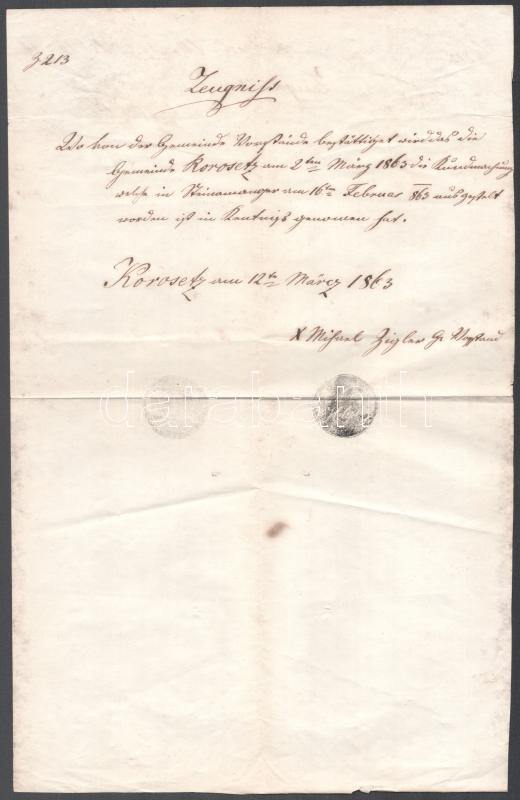 Z 213
Zeugniss
Wo von der Gemeinde Vorstände bestättiget wird das die
Gemeinde Korosetz am 2ten März 1863 die Kundmachung
welche in Steinamanger am 16ten Februar 863 ausgestelt
worden ist in Kentniß genomen hat.
Korosetz am 12te Märcz 1863
X Mihael Zigler Gr Vorstand
darabanth